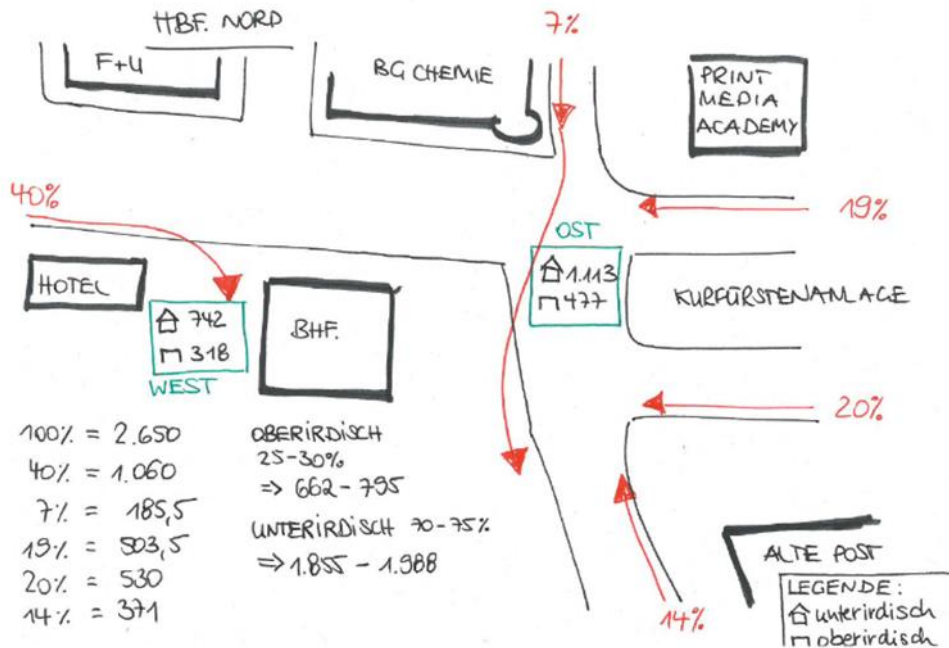 HBF. NORD
7%
F+U
BG CHEMIE
PRINT
MEDIA
ACADEMY
40%
19%
OST
1.113
477
HOTEL
742
318
WEST
BHF.
KURFÜRSTENANLAGE
20%
100% = 2.650
40% = 1.060
7% = 185,5
19% = 503,5
20% = 530
14% = 371
OBERIRDISCH
25-30%
⇒ 662 - 795
UNTERIRDISCH 70-75%
⇒ 1.855 - 1.988
14%
ALTE POST
LEGENDE:
unterirdisch
oberirdisch